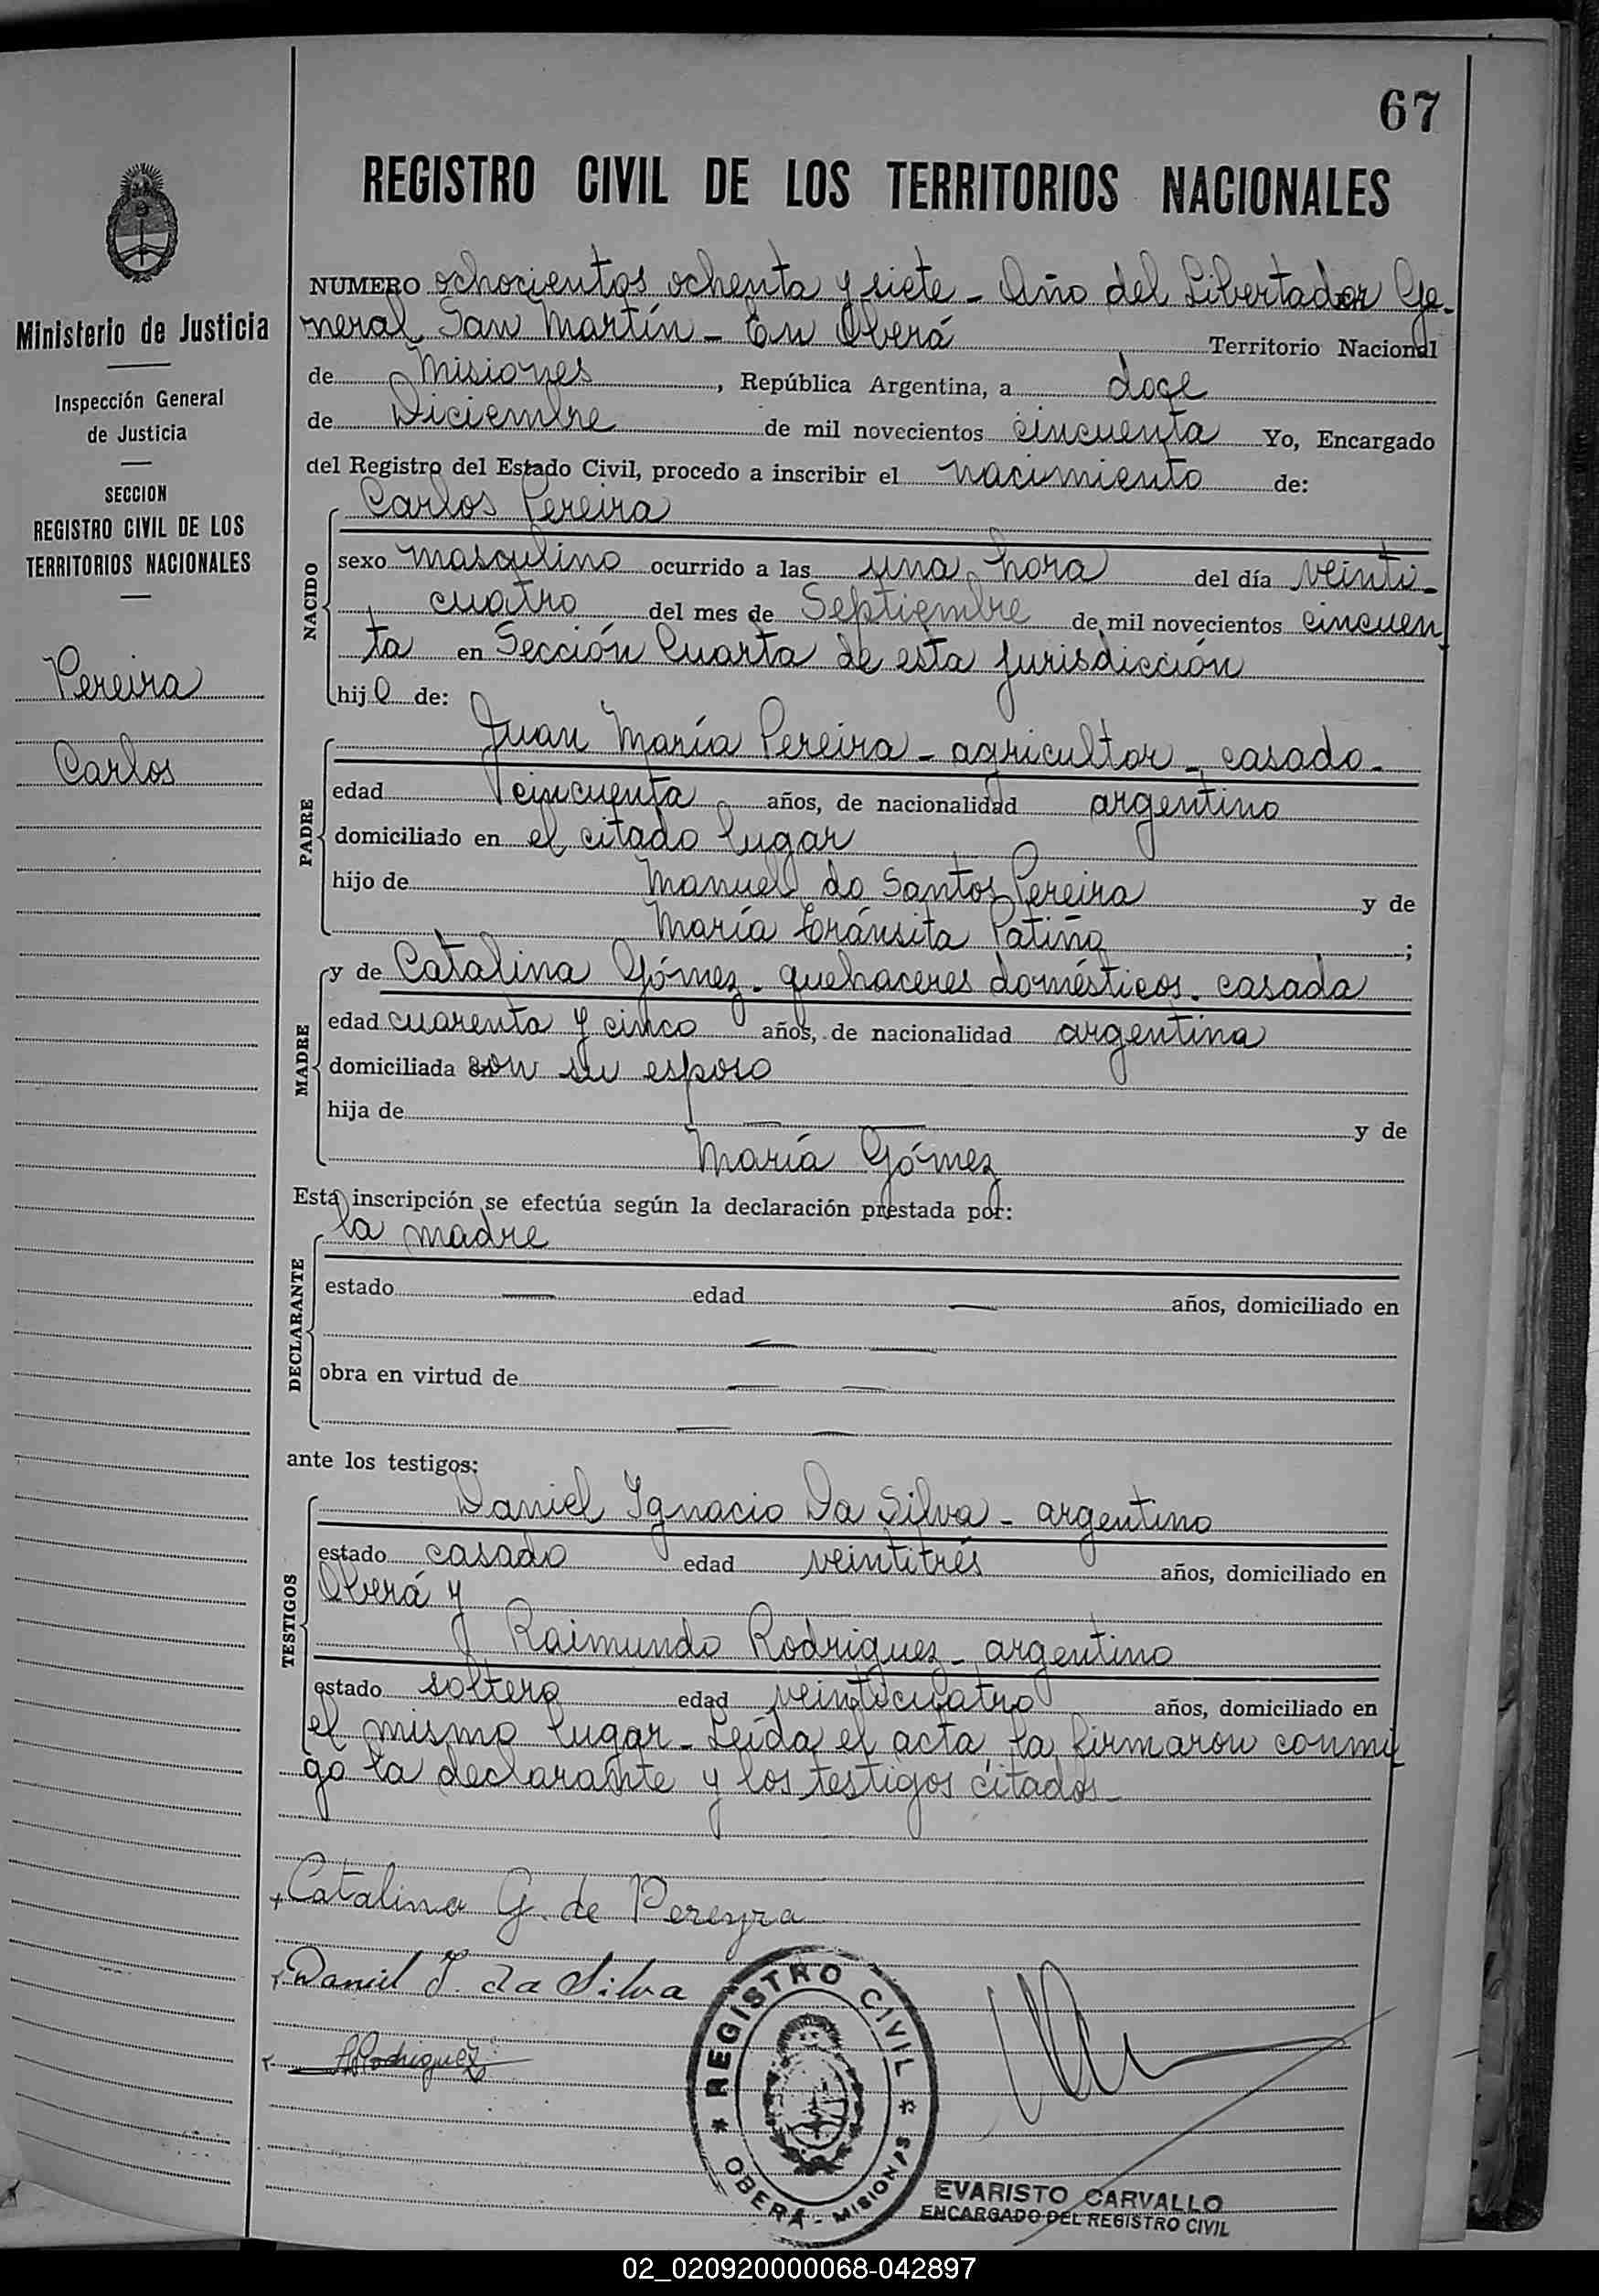 67
REGISTRO CIVIL DE LOS TERRITORIOS NACIONALES
Ministerio de Justicia
Inspección General
de Justicia
SECCION
REGISTRO CIVIL DE LOS
TERRITORIOS NACIONALES
Pereira
Carlos
NUMERO ochocientos ochenta y siete - Año del Libertador Ge-
neral San Martín - En Oberá Territorio Nacional
de Misiones, República Argentina, a doce
de Diciembre de mil novecientos cincuenta Yo, Encargado
del Registro del Estado Civil, procedo a inscribir el nacimiento de:
NACIDO
Carlos Pereira
sexo masculino ocurrido a las una hora del día veinti-
cuatro del mes de Septiembre de mil novecientos cincuen
ta en Sección Cuarta de esta jurisdicción
hijo de:
PADRE
Juan María Pereira - agricultor - casado -
edad cincuenta años, de nacionalidad argentino
domiciliado en el citado lugar
hijo de Manuel do Santos Pereira y de
María Tránsita Patiño ;
MADRE
y de Catalina Gómez - quehaceres domésticos - casada
edad cuarenta y cinco años, de nacionalidad argentina
domiciliada con su esposo
hija de — — y de
María Gómez
Esta inscripción se efectúa según la declaración prestada por:
DECLARANTE
la madre
estado — edad — años, domiciliado en
— —
obra en virtud de — —
— —
ante los testigos:
TESTIGOS
Daniel Ignacio Da Silva - argentino
estado casado edad veintitrés años, domiciliado en
Oberá y
Raimundo Rodriguez - argentino
estado soltero edad veinticuatro años, domiciliado en
el mismo lugar - Leída el acta, la firmaron conmi
go la declarante y los testigos citados -
Catalina G. de Pereyra
Daniel I. da Silva
Rodriguez
REGISTRO CIVIL
OBERA - MISIONES
EVARISTO CARVALLO
ENCARGADO DEL REGISTRO CIVIL
02_020920000068-042897